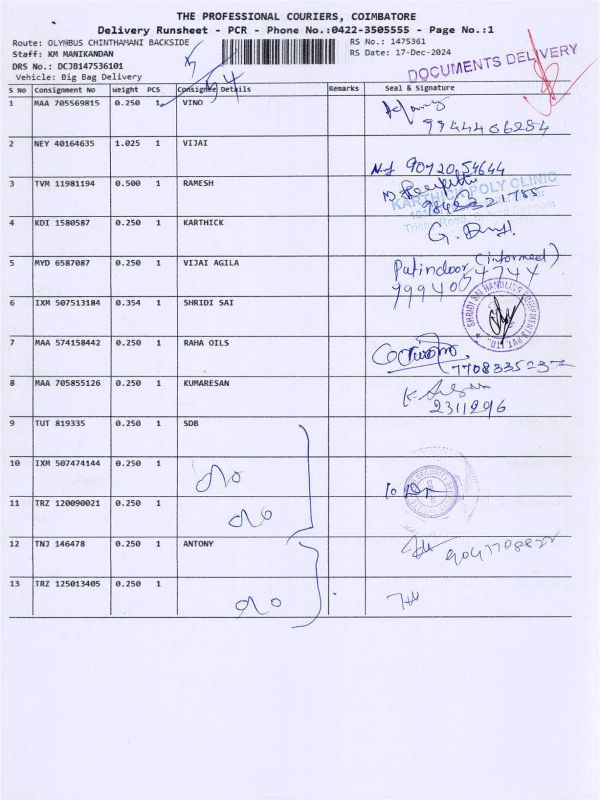 THE PROFESSIONAL COURIERS, COIMBATORE
Delivery Runsheet - PCR - Phone No.:0422-3505555 - Page No.:1
Route: OLYMBUS CHINTHAMANI BACKSIDE RS No.: 1475361
Staff: KM MANIKANDAN RS Date: 17-Dec-2024
DRS No.: DCJB147536101
Vehicle: Big Bag Delivery
DOCUMENTS DELIVERY
S No Consignment No Weight PCS Consignee Details Remarks Seal & Signature
1 MAA 705569815 0.250 1 VINO
9944406284
2 NEY 40164635 1.025 1 VIJAI
9092054644
3 TVM 11981194 0.500 1 RAMESH
KARTHICK POLY CLINIC
4 KDI 1580587 0.250 1 KARTHICK
5 MYD 6587087 0.250 1 VIJAI AGILA
(informed)
9994054744
6 IXM 507513184 0.354 1 SHRIDI SAI
SHRIDI SAI HANDLING EQUIPMENTS PVT. LTD.
7 MAA 574158442 0.250 1 RAHA OILS
7708335237
8 MAA 705855126 0.250 1 KUMARESAN
2311296
9 TUT 819335 0.250 1 SDB
10 IXM 507474144 0.250 1
11 TRZ 120090021 0.250 1
12 TNJ 146478 0.250 1 ANTONY
13 TRZ 125013405 0.250 1